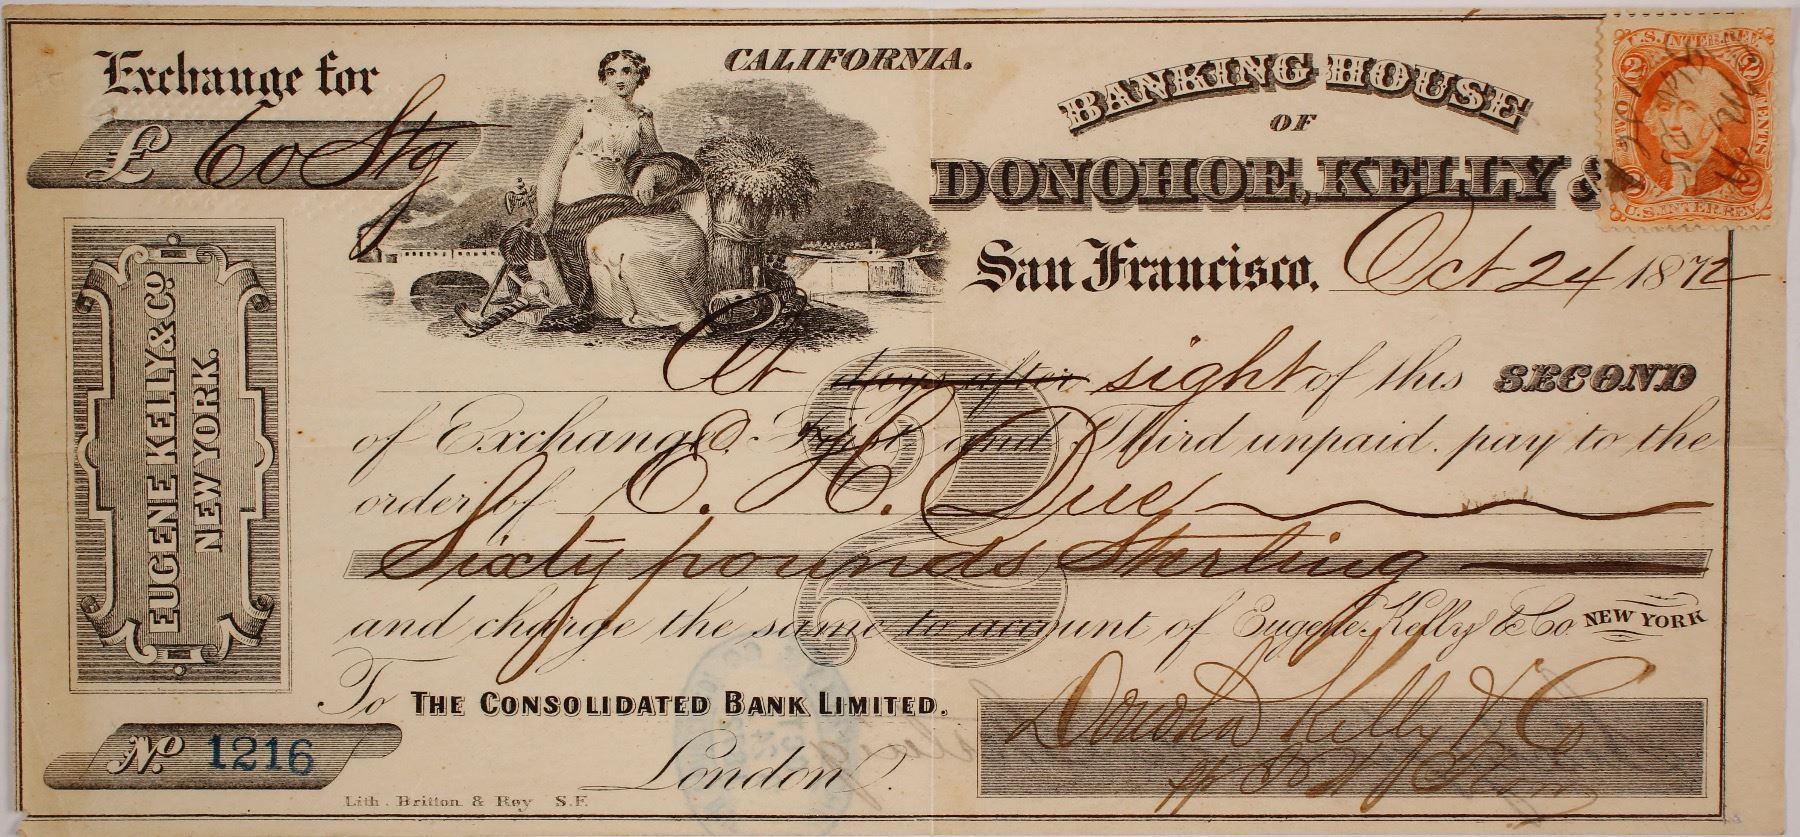 Exchange for
£ 60 Stg
CALIFORNIA.
BANKING HOUSE
OF
DONOHOE, KELLY &
San Francisco, Oct 24 1872
At days after sight of this SECOND
of Exchange First and Third unpaid, pay to the
order of C. H. Due
Sixty pounds Sterling
and charge the same to account of Eugene Kelly & Co. NEW YORK
To THE CONSOLIDATED BANK LIMITED.
London.
Donohoe Kelly & Co
EUGENE KELLY & CO.
NEW YORK.
No. 1216
Lith. Britton & Rey S.F.
U.S. INTER. REV.
2 2
TWO CENTS
U.S. INTER. REV.